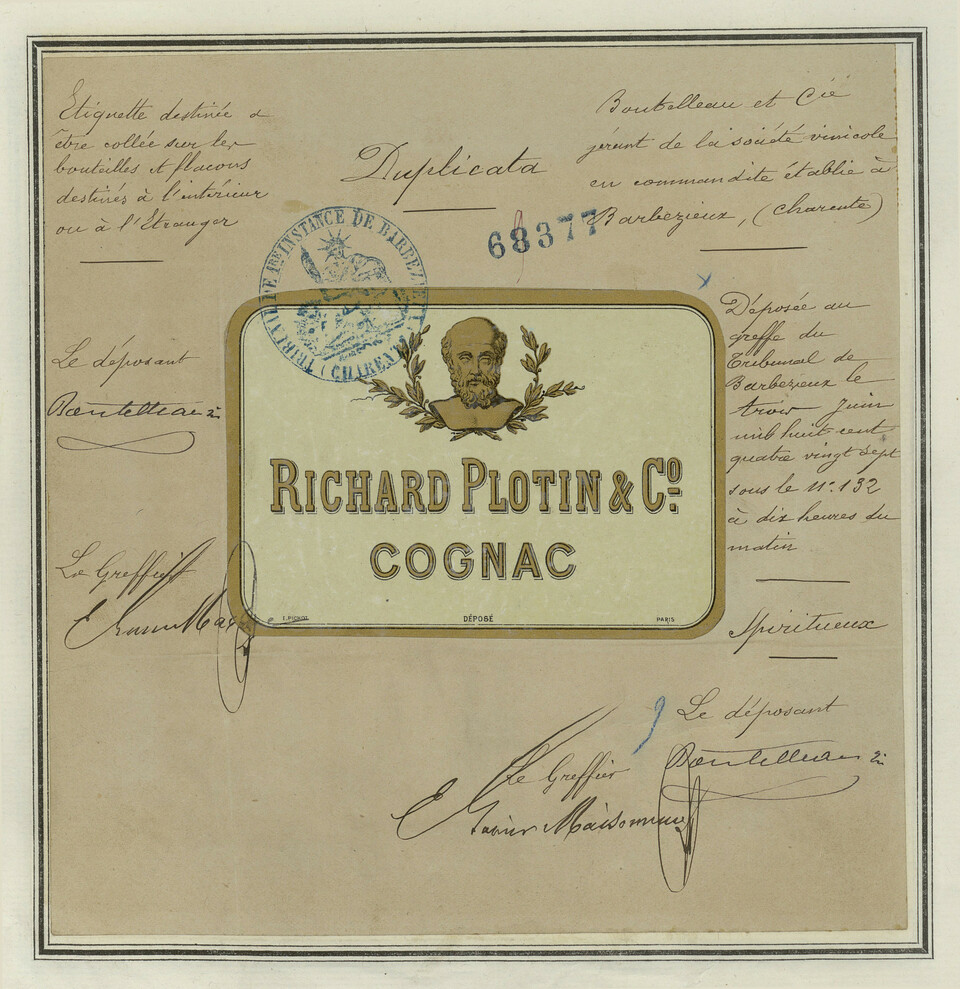 Etiquette destinée a
être collée sur les
bouteilles et flacons
destinés à l'intérieur
ou à l'Etranger
Duplicata
Boutelleau et Cie
gérant de la société vinicole
en commandite établie à
Barbezieux, (Charente)
68377
TRIBUNAL DE 1RE INSTANCE DE BARBEZIEUX
(CHARENTE)
Le déposant
Boutelleau
Le Greffier
RICHARD PLOTIN & Co.
COGNAC
DÉPOSÉ
PARIS
Déposée au
greffe du
Tribunal de
Barbezieux le
trois Juin
mil huit cent
quatre vingt sept
sous le No. 132
à dix heures du
matin
Spiritueux
Le déposant
Boutelleau
Le Greffier